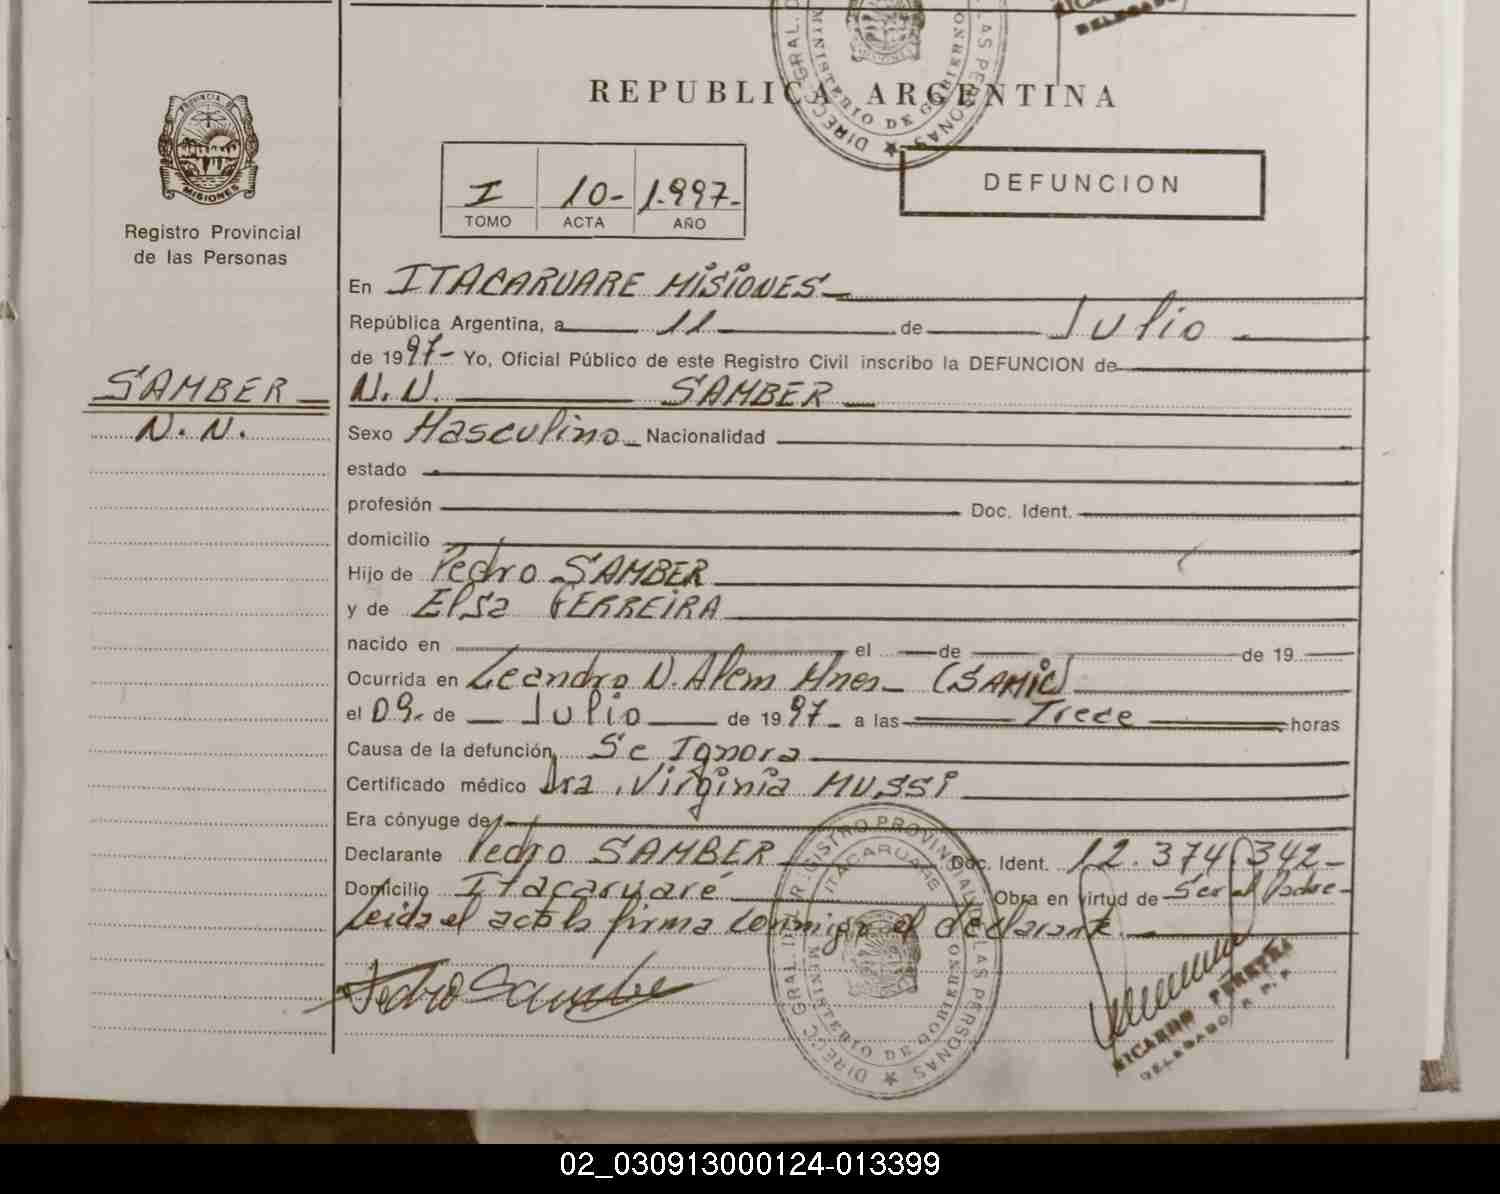 REPUBLICA ARGENTINA
PROVINCIA DE
MISIONES
Registro Provincial
de las Personas
I 10- 1.997-
TOMO ACTA AÑO
DEFUNCION
En ITACARUARE MISIONES
República Argentina, a 11 de Julio
de 1997- Yo, Oficial Público de este Registro Civil inscribo la DEFUNCION de
SAMBER
N. N.
N. N. SAMBER
Sexo Masculino Nacionalidad
estado
profesión Doc. Ident.
domicilio
Hijo de Pedro SAMBER
y de Elsa FERREIRA
nacido en el de de 19
Ocurrida en Leandro N. Alem Mnes (SAMIC)
el 09. de Julio de 1997 a las Trece horas
Causa de la defunción Se Ignora
Certificado médico Dra. Virginia MUSSI
Era cónyuge de
Declarante Pedro SAMBER Doc. Ident. 12.374.342
Domicilio Itacaruaré Obra en virtud de Ser el Padre
Leida el acta la firma conmigo el declarante.
Pedro Sambe
DIRECC GRAL. REGISTRO PROVINCIAL LAS PERSONAS
ITACARUARE
MINISTERIO DE GOBIERNO
RICARDO PEREYRA
DELEGADO R. P. P.
02_030913000124-013399